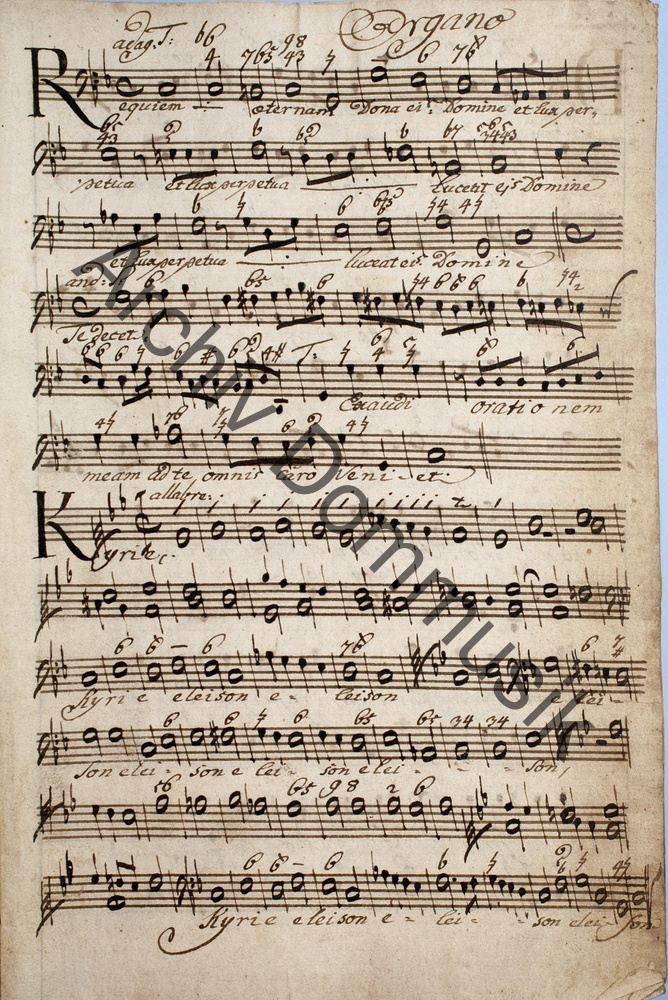 Organo
adag. T:
Requiem aeternam Dona ei: Domine et lux per,
petua et lux perpetua luceat eis Domine
et lux perpetua luceat eis Domine
and:
Te decet
T:
Exaudi orationem
meam ad te omnis Caro Veni et:
allabre:
Kyrie
Kyrie eleison e = leison e lei =
son elei = son e lei = son elei = son,
Kyrie eleison e = lei = son elei = son
Archiv Dommusik